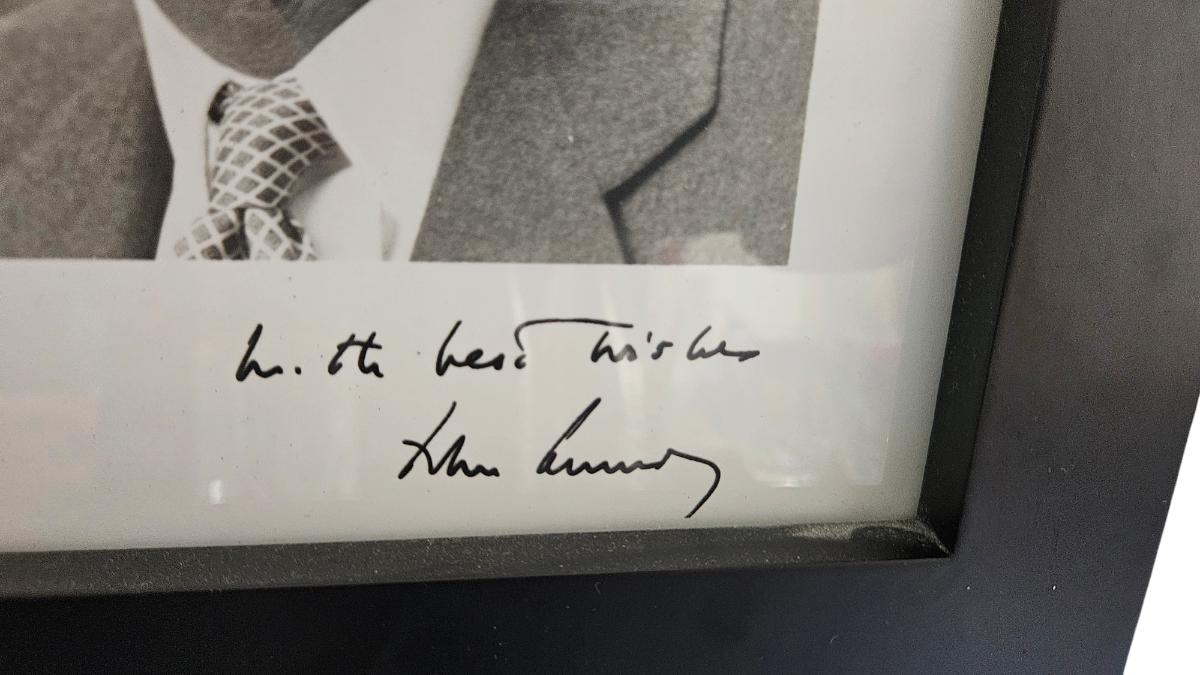 With best wishes
John Kennedy